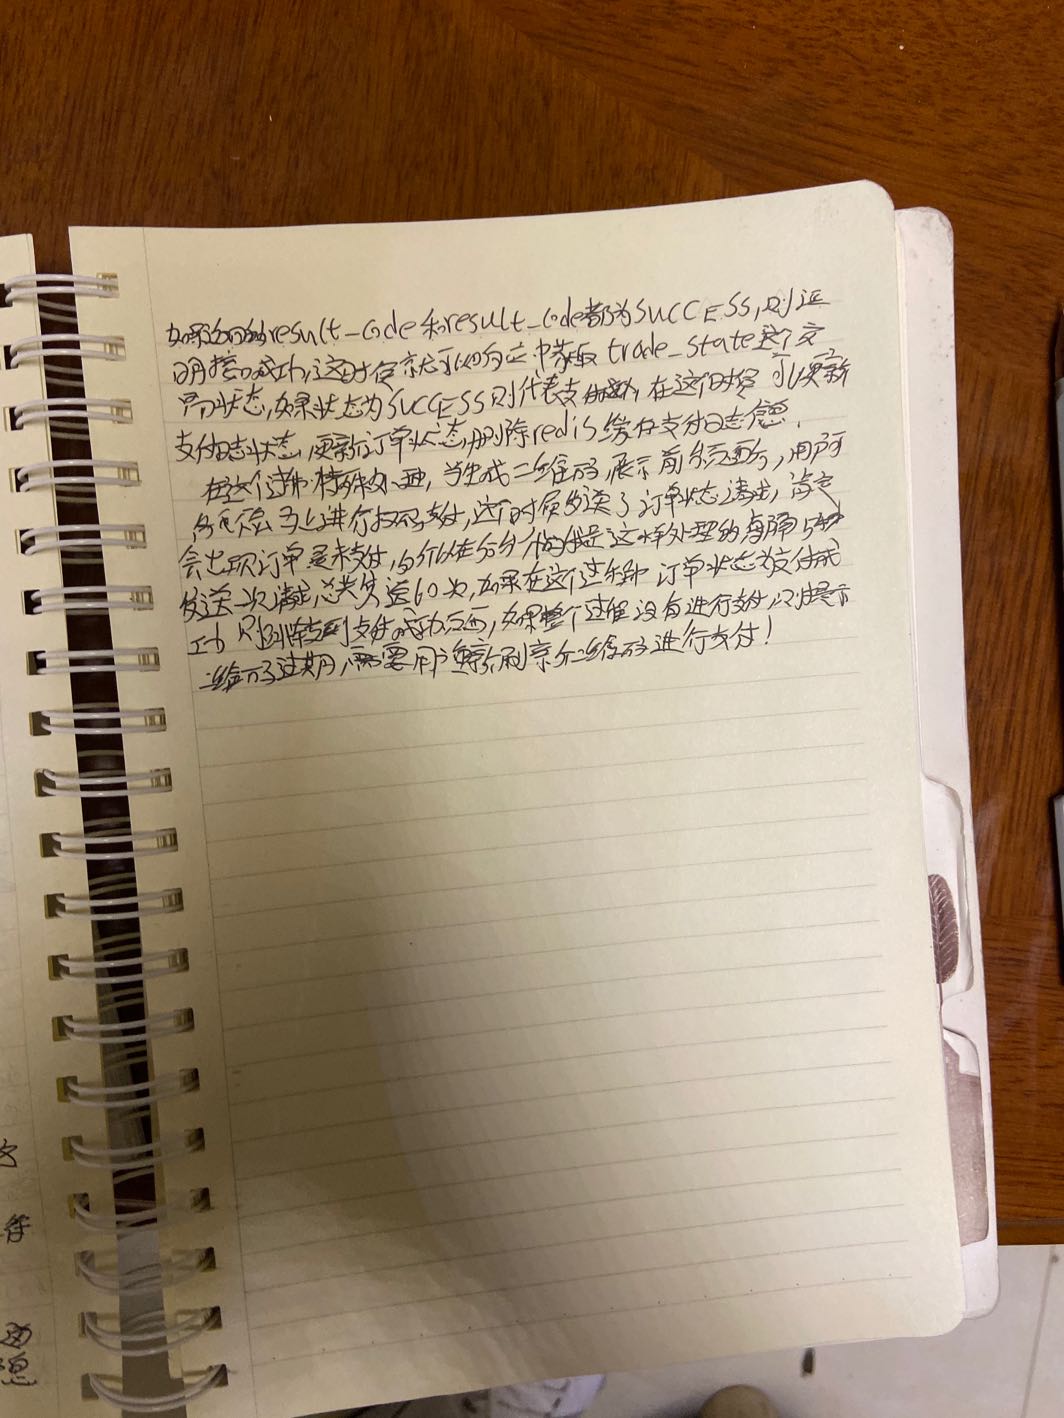 如果返回的result_code和result_code都为SUCCESS,则证
明接口成功,这时候就可以向应中获取 trade_state这个交
易状态,如果状态为SUCCESS则代表支付成功,在这个时候 可以更新
支付日志状态,更新订单状态,删除redis缓存支付日志信息.
在这个过程中 特殊处理,当生成二维码,展示前台页面后,用户可
能不会马上进行扫码支付,这个时候发送了订单状态请求,肯定
会出现订单是未支付,所以在这个 我是这样处理的每隔5秒
发送一次请求,总共发送60次,如果在这个过程中 订单状态为支付成
功 则跳转到支付成功页面,如果整个过程没有进行支付,则提示
二维码过期,需要用户重新刷新二维码进行支付!
息